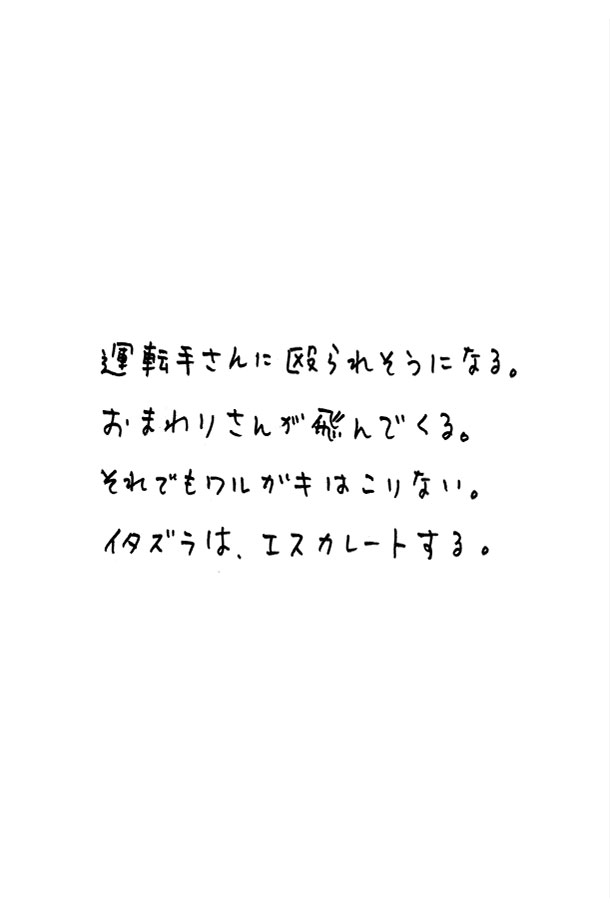 運転手さんに殴られそうになる。
おまわりさんが飛んでくる。
それでもワルガキはこりない。
イタズラは、エスカレートする。